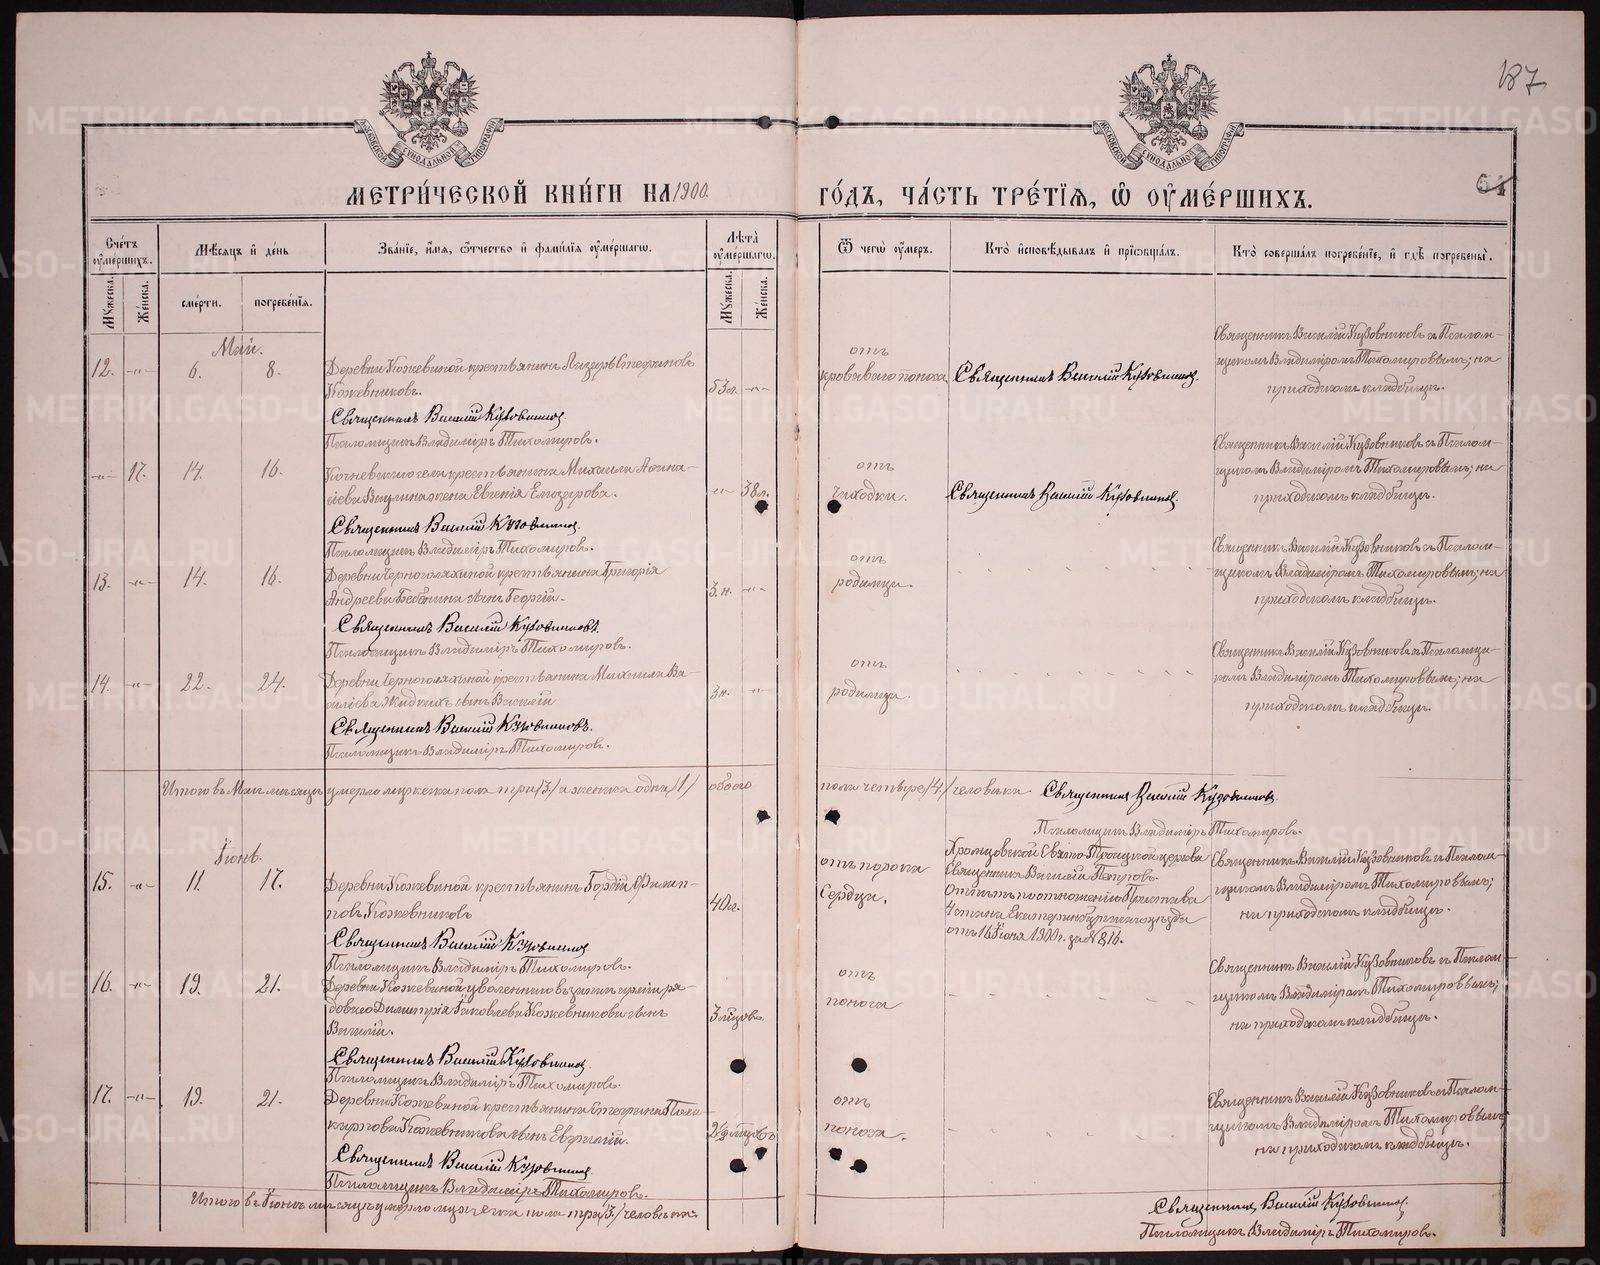 187
МОСКОВСКОЙ СѴНОДАЛЬНОЙ ТИПОГРАФІИ
МОСКОВСКОЙ СѴНОДАЛЬНОЙ ТИПОГРАФІИ
МЕТРИ́ЧЕСКОЙ КНИ́ГИ НА 1900 ГО́ДЪ, ЧА́СТЬ ТРЕ́ТІЯ, Ѿ ОУ҆МЕ́РШИХЪ.
Сче́тъ оу҆ме́ршихъ.
Мѣ́сяцъ и҆ де́нь
Зва́ніе, и҆́мя, ѻ҆́тчество и҆ фами́лія оу҆ме́ршагѡ.
Лѣ́та оу҆ме́ршагѡ.
Ѿ чегѡ̀ оу҆́меръ.
Кто̀ и҆сповѣ́дывалъ и҆ пріѡбща́лъ.
Кто̀ соверша́лъ погребе́ніе, и҆ гдѣ̀ погребены̀.
Мꙋ́жеска.
Же́нска.
сме́рти.
погребе́нія.
Мꙋ́жеска.
Же́нска.
Май.
12. -"- 6. 8. Деревни Кожевиной крестьянинъ Лазарь Стефановъ
Кожевниковъ. 53 л. -"-
Священникъ Василій Кузовниковъ
Псаломщикъ Владиміръ Тихомировъ.
отъ
кроваваго поноса
Священникъ Василій Кузовниковъ.
Священникъ Василій Кузовниковъ съ Псалом-
щикомъ Владиміромъ Тихомировымъ; на
приходскомъ кладбищѣ.
-"- 17. 14. 16. Кочневскаго села крестьянина Михаила Аѳана-
сіева жена Евгенія Елизарова. -"- 38 л.
Священникъ Василій Кузовниковъ.
Псаломщикъ Владиміръ Тихомировъ.
отъ
чахотки.
Священникъ Василій Кузовниковъ.
Священникъ Василій Кузовниковъ съ Псалом-
щикомъ Владиміромъ Тихомировымъ; на
приходскомъ кладбищѣ.
13. -"- 14. 16. Деревни Черноголяхиной крестьянина Григорія
Андреева сынъ Георгій. 3 н. -"-
Священникъ Василій Кузовниковъ.
Псаломщикъ Владиміръ Тихомировъ.
отъ
родимца.
Священникъ Василій Кузовниковъ съ Псалом-
щикомъ Владиміромъ Тихомировымъ; на
приходскомъ кладбищѣ.
14. -"- 22. 24. Деревни Черноголяхиной крестьянина Михаила Ва-
силіева Жидкихъ сынъ Василій 3 н. -"-
Священникъ Василій Кузовниковъ.
Псаломщикъ Владиміръ Тихомировъ.
отъ
родимца.
Священникъ Василій Кузовниковъ съ Псаломщи-
комъ Владиміромъ Тихомировымъ; на
приходскомъ кладбищѣ.
Итого въ Маѣ мѣсяцѣ умерло мужеска пола три /3/ а женска одна /1/ обоего пола четыре /4/ человѣка. Священникъ Василій Кузовниковъ.
Псаломщикъ Владиміръ Тихомировъ.
Іюнь.
15. -"- 11. 17. Деревни Кожевиной крестьянинъ Гордій Филип-
повъ Кожевниковъ 40 л.
Священникъ Василій Кузовниковъ
Псаломщикъ Владиміръ Тихомировъ.
отъ порока
сердца.
Храмцовской Свято-Троицкой церкви
Священникъ Василій Петровъ.
Отпѣтъ по отношенію Пристава
4 стана Екатеринбургскаго уѣзда
отъ 16 Іюня 1900 г. за № 816.
Священникъ Василій Кузовниковъ съ Псалом-
щикомъ Владиміромъ Тихомировымъ;
на приходскомъ кладбищѣ.
16. -"- 19. 21. Деревни Кожевиной уволеннаго въ запасъ арміи ря-
доваго Димитрія Іаковлева Кожевникова сынъ
Василій. 3 мѣсяцовъ.
Священникъ Василій Кузовниковъ.
Псаломщикъ Владиміръ Тихомировъ.
отъ
поноса
Священникъ Василій Кузовниковъ съ Псалом-
щикомъ Владиміромъ Тихомировымъ;
на приходскомъ кладбищѣ.
17. -"- 19. 21. Деревни Кожевиной крестьянина Стефана
Кожевникова сынъ Евѳимій.
Священникъ Василій Кузовниковъ
Псаломщикъ Владиміръ Тихомировъ.
отъ
поноса.
Священникъ Василій Кузовниковъ съ Псалом-
щикомъ Владиміромъ Тихомировымъ;
на приходскомъ кладбищѣ.
Итого въ Іюнѣ мѣсяцѣ умерло мужеска пола три /3/ человѣка:
Священникъ Василій Кузовниковъ.
Псаломщикъ Владиміръ Тихомировъ.
METRIKI.GASO-URAL.RU